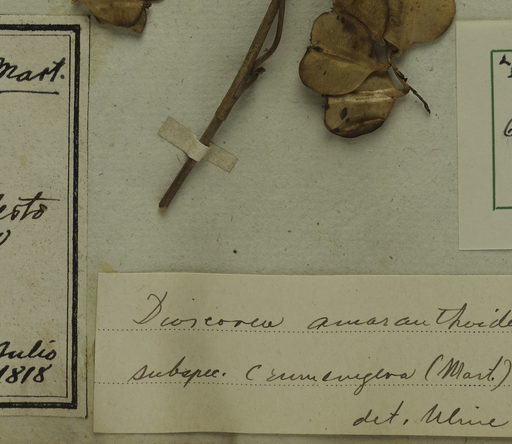 Mart.
Julio
1818
Dioscorea amaranthoide
subspec. Crumenigera (Mart.)
det. Uline